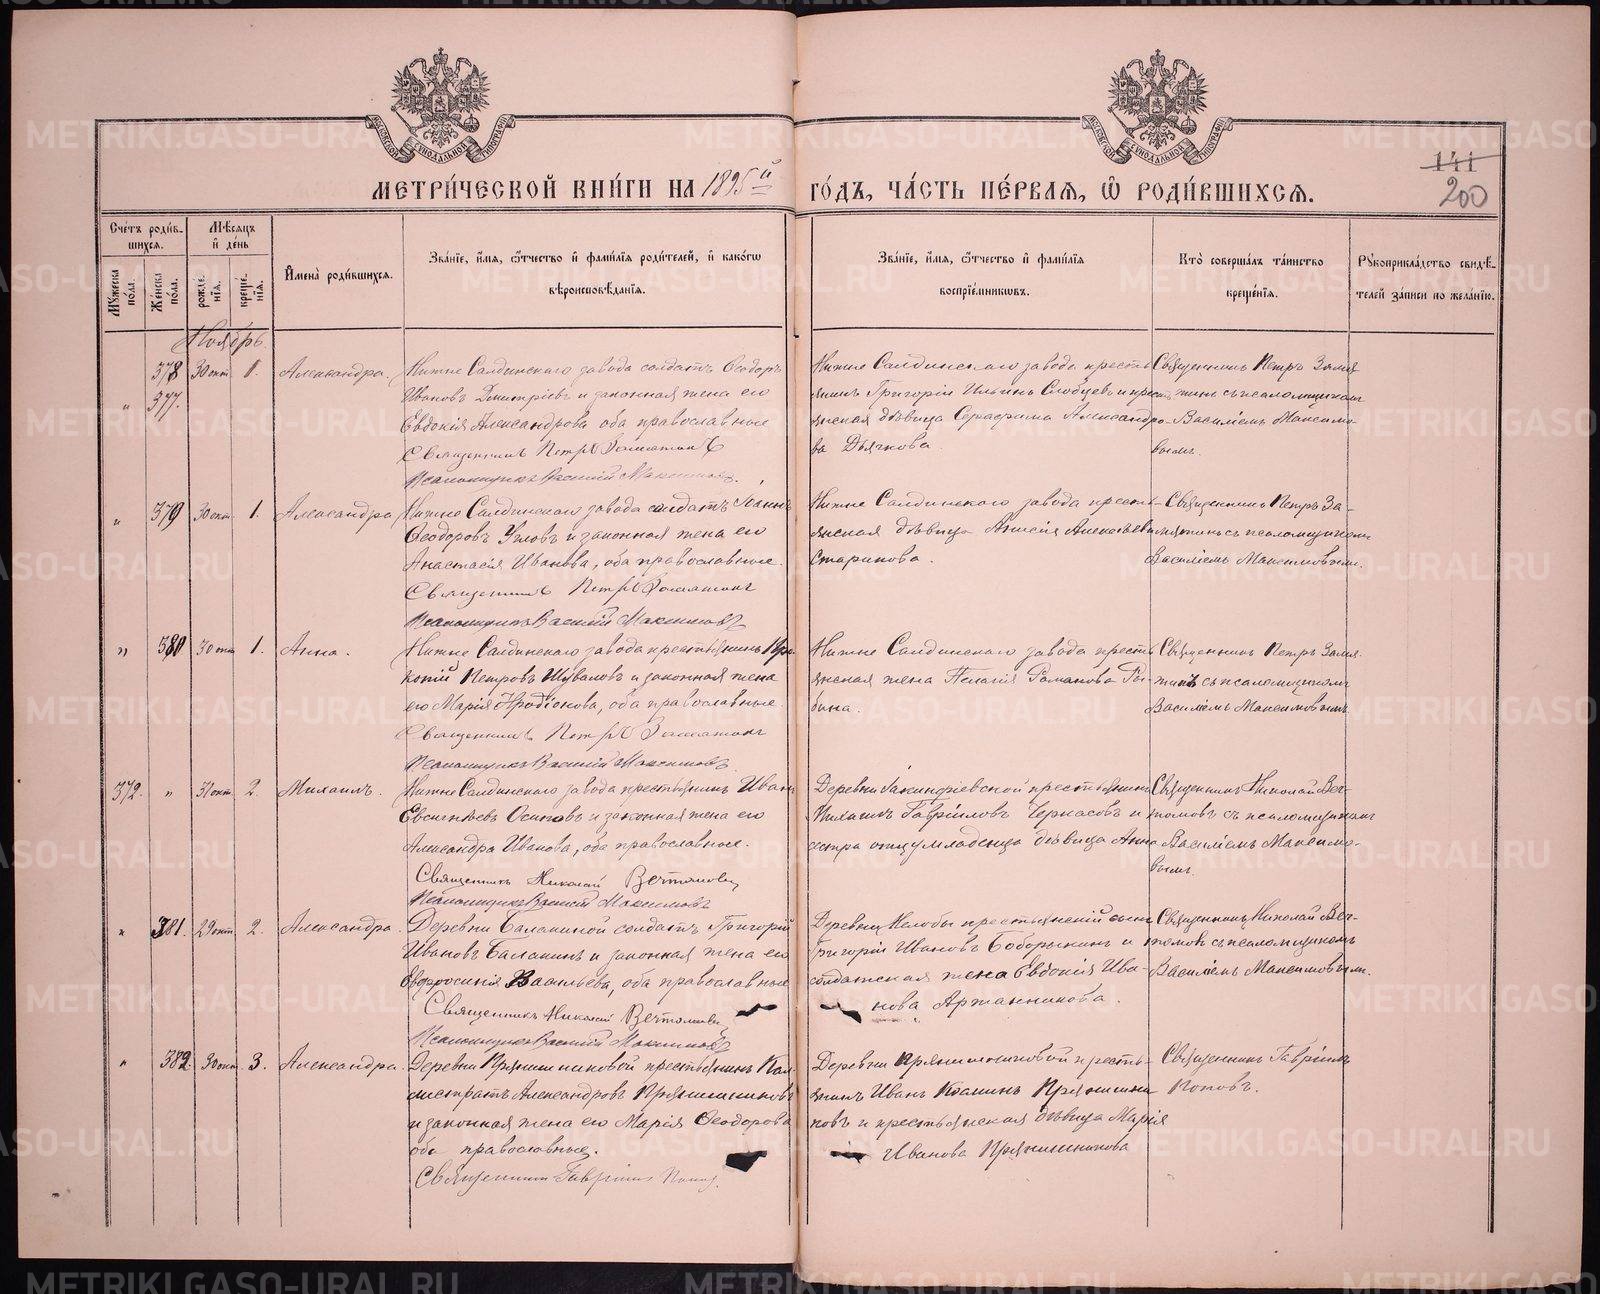 МОСКОВСКОЙ СѴНОДАЛЬНОЙ ТИПОГРАФІИ
МОСКОВСКОЙ СѴНОДАЛЬНОЙ ТИПОГРАФІИ
МЕТРИ́ЧЕСКОЙ КНИ́ГИ НА 1895й
ГО́ДЪ, ЧА́СТЬ ПЕ́РВАЯ, Ѡ РОДИ́ВШИХСЯ.
141
200
Сче́тъ роди́в-
шихся.
Мѣ́сяцъ
и де́нь
Му́жеска по́ла.
Же́нска по́ла.
рожде́-
нїя.
креще́-
нїя.
Имена̀ роди́вшихся.
Зва́нїе, и́мя, о́тчество и фами́лїя роди́телей, и како́гω
вѣроисповѣ́данїя.
Зва́нїе, и́мя, о́тчество и фами́лїя
воспрїе́мникωвъ.
Кто̀ соверша́лъ та́инство
креще́нїя.
Рукоприкла́дство свидѣ́-
телей за́писи по жела́нїю.
Ноябрь
„ 378 30 окт. 1. Александра.
377.
Нижне Салдинскаго завода солдатъ Ѳеодоръ
Ивановъ Дмитріевъ и законная жена его
Евдокія Александрова, оба православные
Священникъ Петръ Замятинъ
Псаломщикъ Василій Максимовъ.
Нижне Салдинскаго завода кресть-
янинъ Григорій Ильинъ Слобцевъ и крест
янская дѣвица Серафима Александро-
ва Дьячкова.
Священникъ Петръ Замя
тинъ съ псаломщикомъ
Василіемъ Максимо-
вымъ.
„ 379 30 окт. 1. Александра
Нижне Салдинскаго завода солдатъ Іоаннъ
Ѳеодоровъ Угловъ и законная жена его
Анастасія Иванова, оба православные.
Священникъ Петръ Замятинъ
Псаломщикъ Василій Максимовъ
Нижне Салдинскаго завода кресть-
янская дѣвица Анисія Алексѣева
Старикова.
Священникъ Петръ За-
мятинъ съ псаломщикомъ
Василіемъ Максимовымъ.
„ 380 30 окт. 1. Анна.
Нижне Салдинскаго завода крестьянинъ Про
копій Петровъ Шуваловъ и законная жена
его Марія Иродіонова, оба православные.
Священникъ Петръ Замятинъ
Псаломщикъ Василій Максимовъ.
Нижне Салдинскаго завода кресть
янская жена Пелагія Романова Ры-
бина.
Священникъ Петръ Замя
тинъ съ псаломщикомъ
Василіемъ Максимовымъ
372. „ 31 окт. 2. Михаилъ.
Нижне Салдинскаго завода крестьянинъ Иванъ
Евсигнѣевъ Осиповъ и законная жена его
Александра Иванова, оба православные.
Священникъ Николай
Псаломщикъ Василій Максимовъ
Деревни крестьянинъ
Михаилъ Гавріиловъ Черкасовъ и
сестра отцу младенца дѣвица Анна
Священникъ Николай
съ псаломщикомъ
Василіемъ Максимо-
вымъ.
„ 381. 29 окт. 2. Александра.
Деревни Балакиной солдатъ Григорій
Ивановъ Балакинъ и законная жена его
Евфросинія Васильева, оба православные
Священникъ Николай
Псаломщикъ Василій Максимовъ
Деревни Нелобы крестьянскій сынъ
Григорій Ивановъ Боборыкинъ и
солдатская жена Евдокія Ива-
нова Аржанникова.
Священникъ Николай
съ псаломщикомъ
Василіемъ Максимовымъ.
„ 382. 30 окт. 3. Александра.
Деревни Прянишниковой крестьянинъ Кал
листратъ Александровъ Прянишниковъ
и законная жена его Марія Ѳеодорова
оба православные.
Священникъ Гавріилъ Поповъ.
Деревни Прянишниковой кресть-
янинъ Иванъ Прянишни
ковъ и крестьянская дѣвица Марія
Иванова Прянишникова
Священникъ Гавріилъ
Поповъ.
METRIKI.GASO-URAL.RU